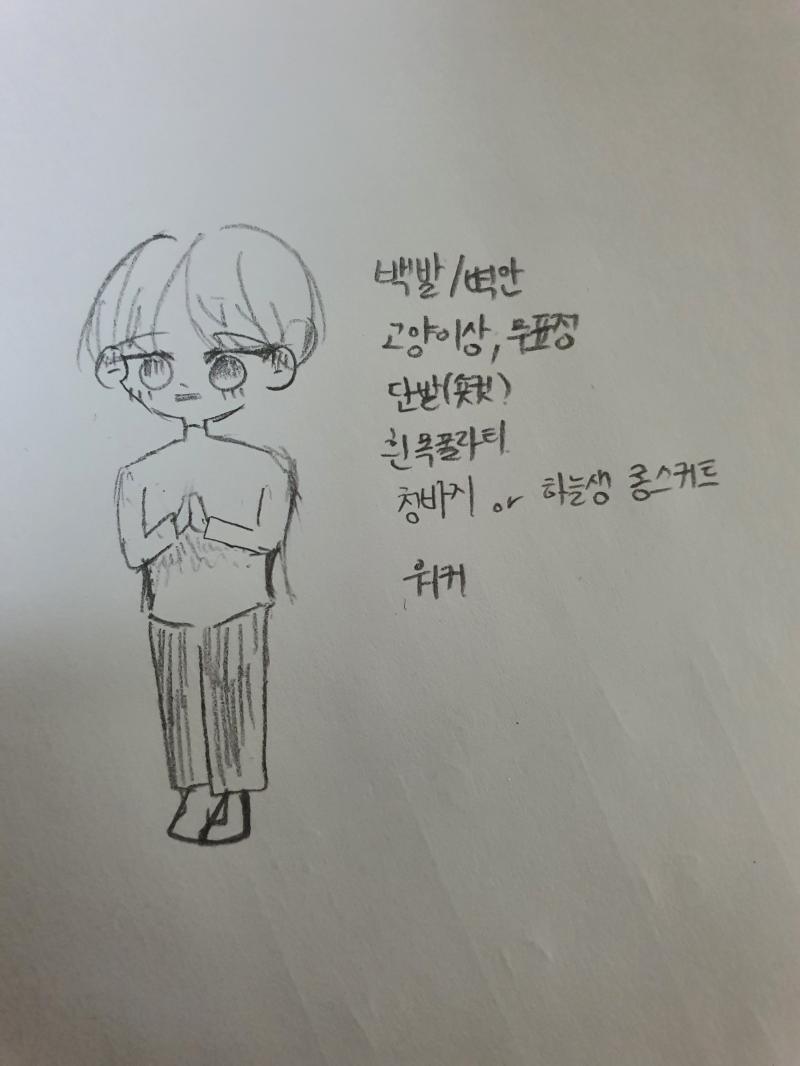 백발/벽안
고양이상, 무표정
단발(숏컷?)
흰 목폴라티
청바지 or 하늘색 롱스커트
워커